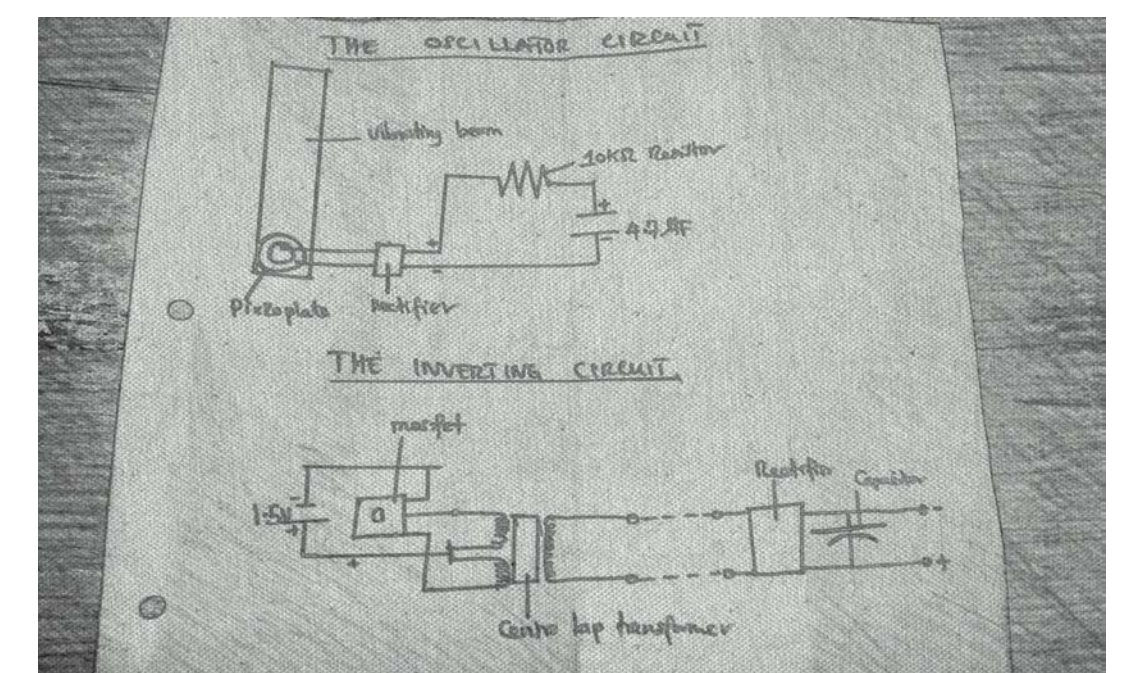 THE OSCILLATOR CIRCUIT
Vibrating beam
10KΩ Resistor
+
+
-
-
Piezoplate
Rectifier
THE INVERTING CIRCUIT
mosfet
Rectifier
Capacitor
-
1.5V
-
+
+
+
Centre tap transformer